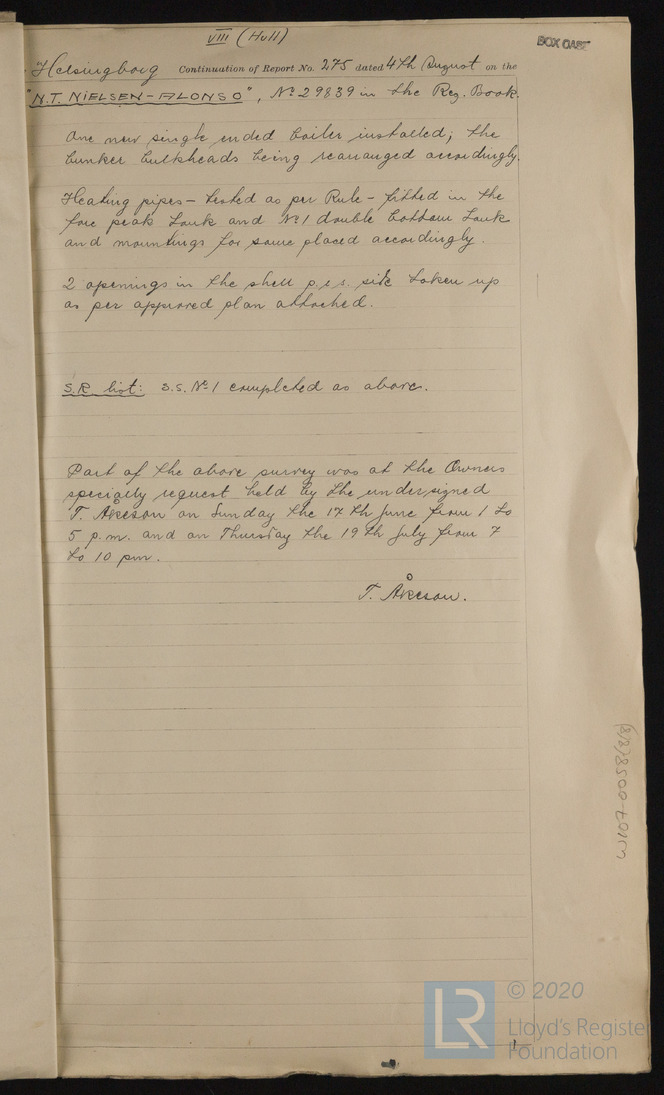 VIII (Hull)
BOX CASE
Helsingborg Continuation of Report No. 275 dated 4th August on the
"N.T. NIELSEN-ALONSO", No 29839 in the Reg. Book.
One new single ended boiler installed; the
bunker bulkheads being rearranged accordingly.
Heating pipes - tested as per Rule - fitted in the
fore peak tank and No 1 double bottom tank
and mountings for same placed accordingly.
2 openings in the shell p. & s. side taken up
as per approved plan attached.
S.R. list: S.S. No 1 completed as above.
Part of the above survey was at the Owners
specially request held by the undersigned
T. Åkeson on Sunday the 17th June from 1 to
5 p.m. and on Thursday the 19th July from 7
to 10 pm.
T. Åkeson.
W107-0058(8/8)
LR
© 2020
Lloyd's Register
Foundation